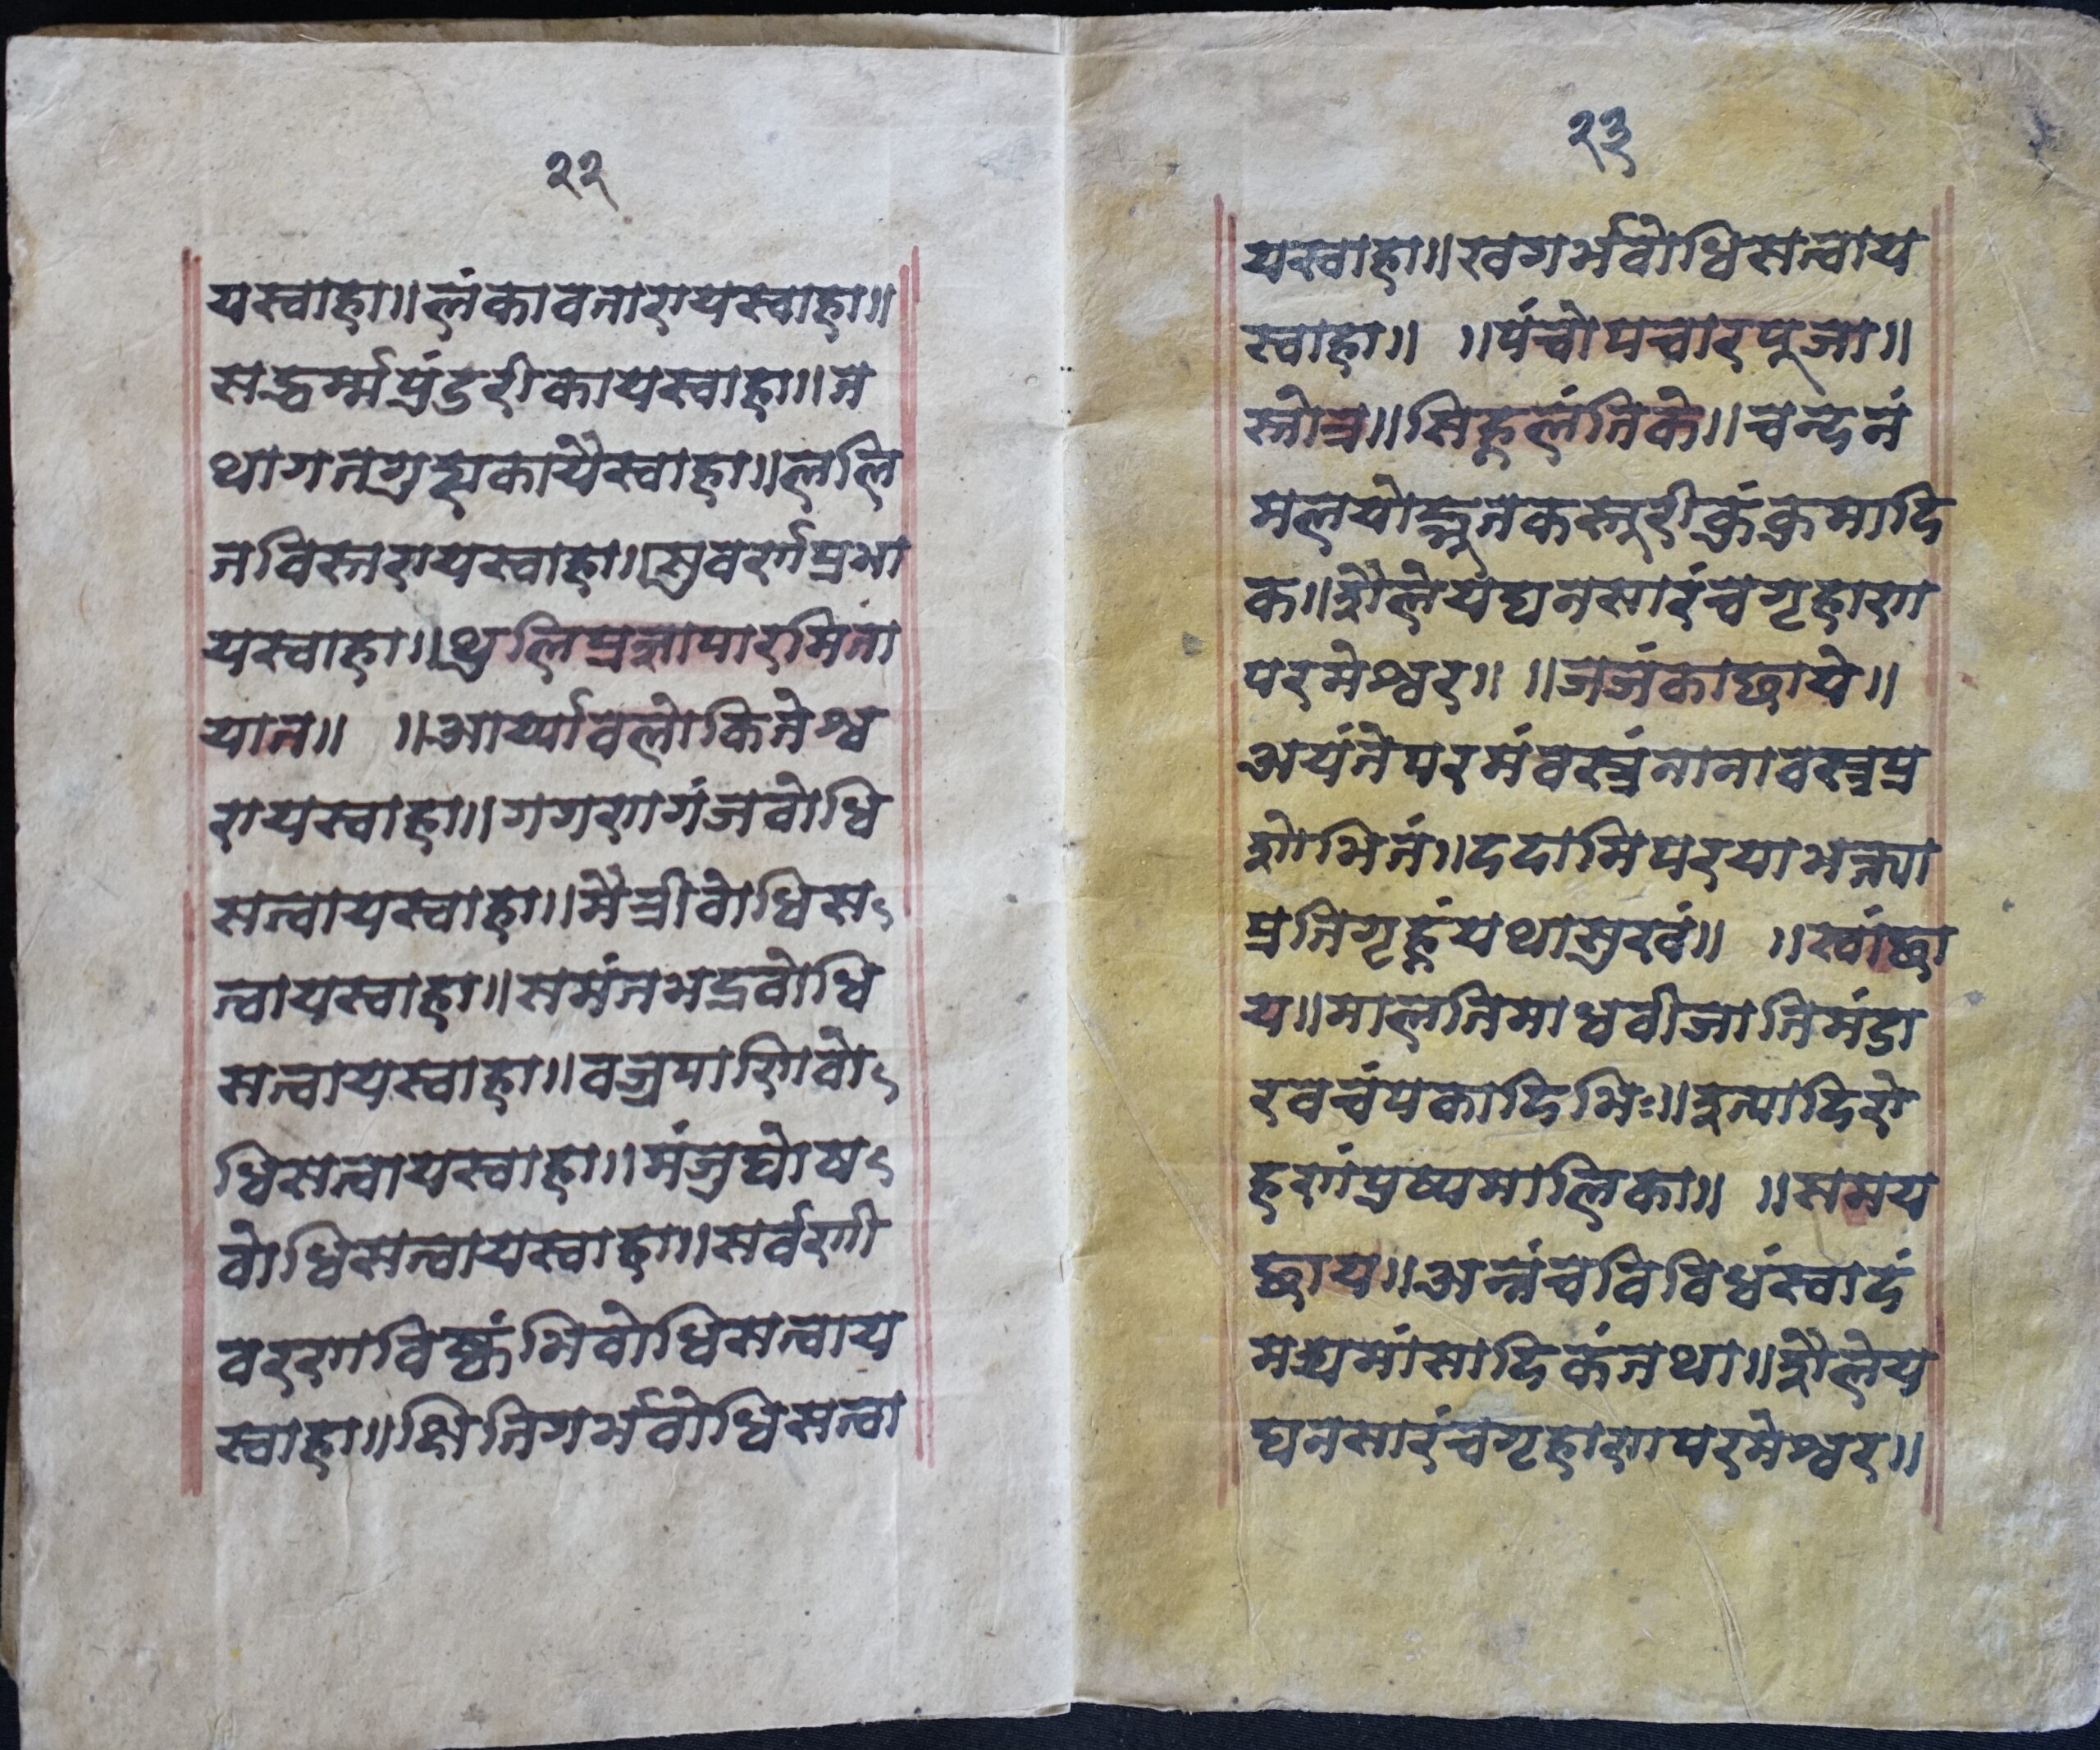 २२
यस्वाहा॥लंकावतारायस्वाहा॥
सद्धर्म्मपुंडरीकायस्वाहा॥त
थागतगुह्यकायैस्वाहा॥ललि
तविस्तरायस्वाहा॥सुवर्णप्रभा
यस्वाहा॥थुलिप्रज्ञापारमिता
यात॥ ॥आर्य्यावलोकितेश्व
रायस्वाहा॥गगणगंजबोधि
सत्वायस्वाहा॥मैत्रीबोधिस
त्वायस्वाहा॥समंतभद्रबोधि
सत्वायस्वाहा॥वज्रपाणिबो
धिसत्वायस्वाहा॥मंजुघोष
बोधिसत्वायस्वाहा॥सर्वणी
वरणविष्कंभिबोधिसत्वाय
स्वाहा॥क्षितिगर्भबोधिसत्वा
२३
यस्वाहा॥खगर्भबोधिसत्वाय
स्वाहा॥ ॥पंचोपचारपूजा॥
स्तोत्र॥सिह्लंतिके॥चन्दनं
मलयोद्भूतकस्तुरीकुंकुमादि
क॥शैलेयंघनसारंचगृहाण
परमेश्वर॥ ॥जजंकाछाये॥
अयंतेपरमंवस्त्रंनानावस्त्रप्र
शोभितं॥ददामिपरयाभक्त्या
प्रतिगृह्णंयथासुखं॥ ॥स्वांछा
य॥मालतिमाधवीजातिमंडा
रवचंपकादिभिः॥इत्यादिरो
हणंपुष्पमालिका॥ ॥समय
छाय॥अन्नंचविविधंस्वादं
मत्स्यमांसादिकंतथा॥शैलेय
घनसारंचगृहाणपरमेश्वर॥